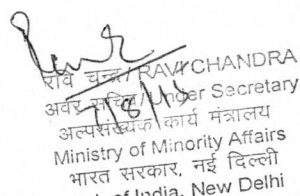 रवि चन्द्र / RAVI CHANDRA
अवर सचिव / Under Secretary
7/8/18
अल्पसंख्यक कार्य मंत्रालय
Ministry of Minority Affairs
भारत सरकार, नई दिल्ली
of India, New Delhi